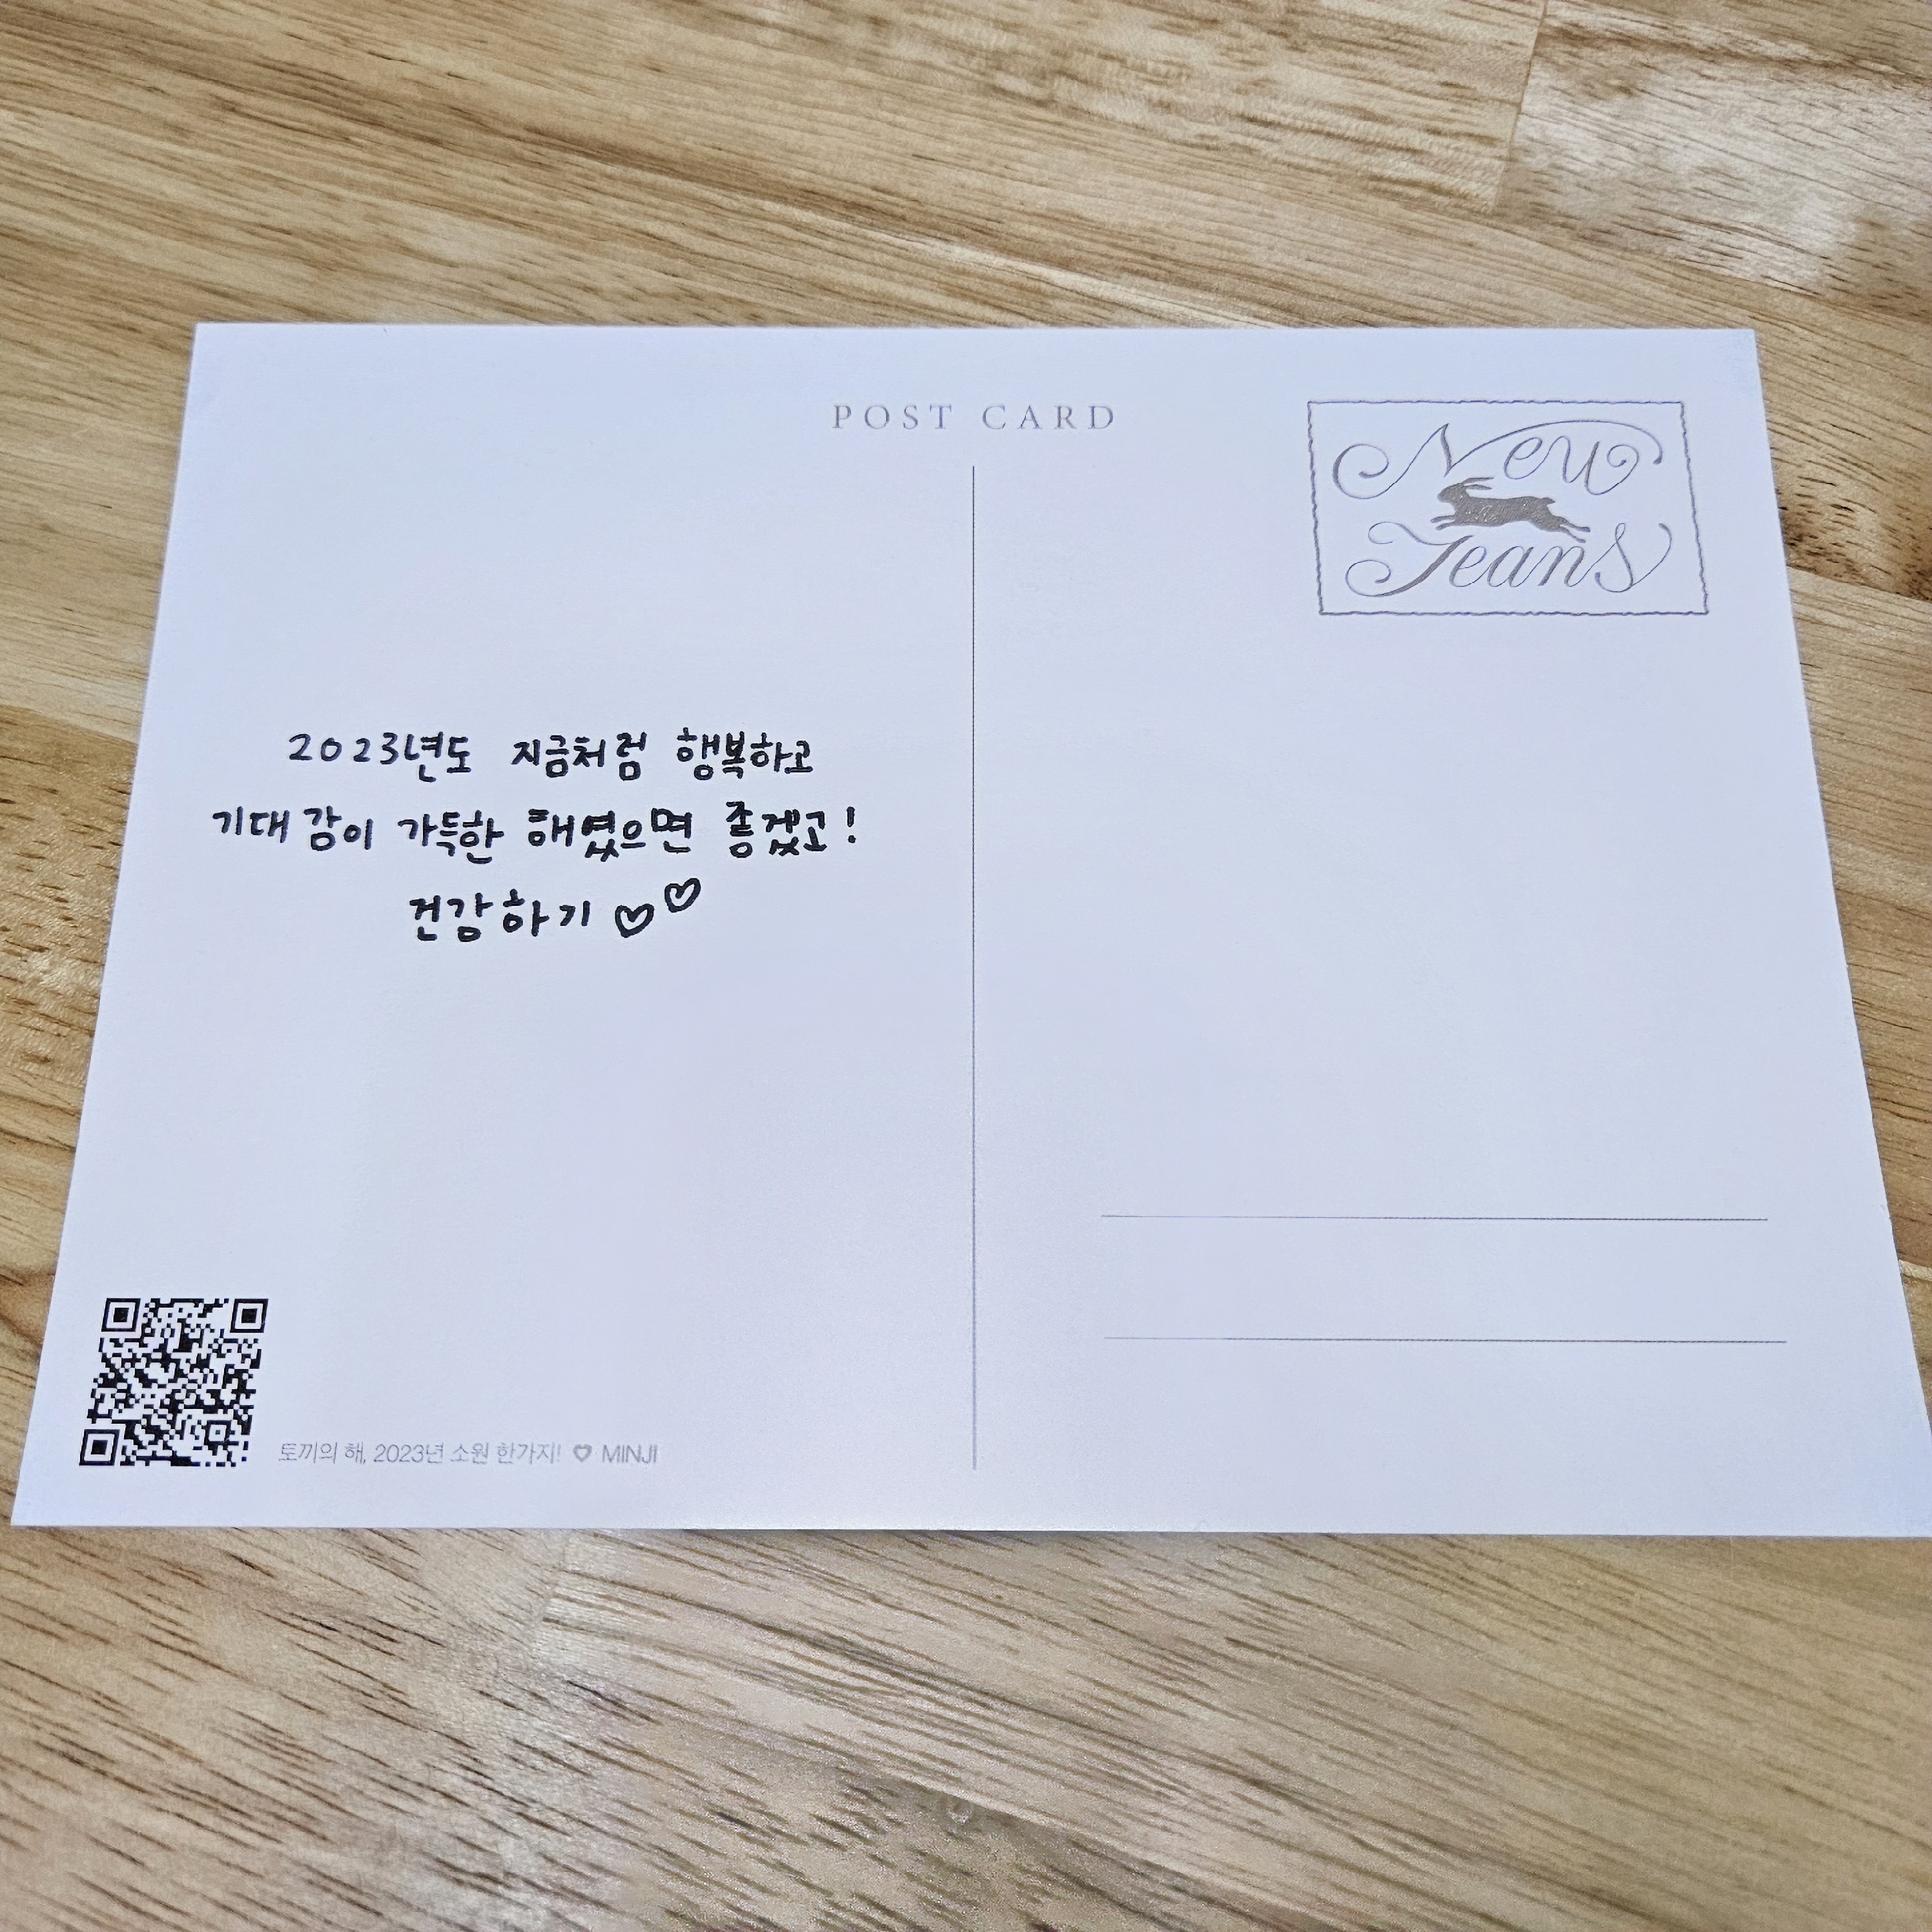 POST CARD
New
Jeans
2023년도 지금처럼 행복하고
기대감이 가득한 해였으면 좋겠고!
건강하기 ♡♡
토끼의 해, 2023년 소원 한가지! ♡ MINJI